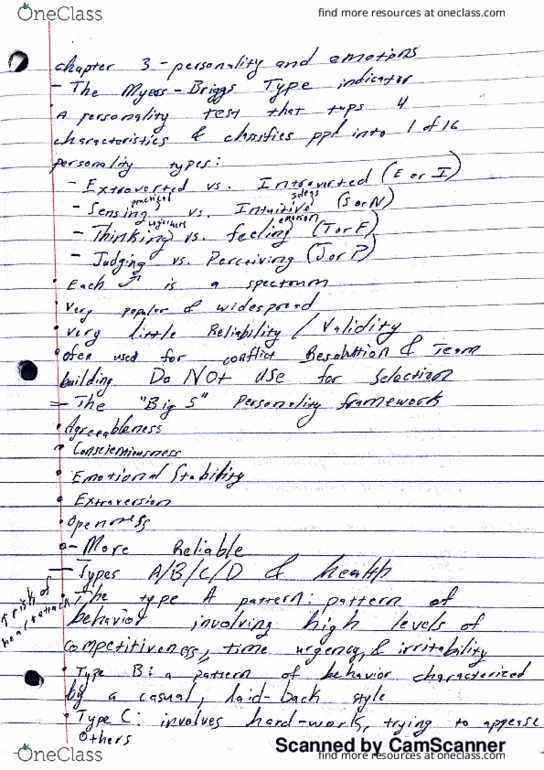 OneClass
find more resources at oneclass.com
chapter 3 - personality and emotions
- The Myers-Briggs Type indicator
A personality test that taps 4
characteristics & classifies ppl into 1 of 16
personality types:
- Extroverted vs. Introverted (E or I)
practical ideas
- Sensing vs. Intuitive (S or N)
emotion
- Thinking vs. feeling (T or F)
- Judging vs. Perceiving (J or P)
• Each is a spectrum
• Very popular & widespread
• very little Reliability / Validity
• often used for conflict Resolution & Team
building Do NOt Use for Selection
- The "Big 5" Personality framework
• Agreeableness
• Conscientiousness
• Emotional Stability
• Extraversion
• Openness
- More Reliable
- Types A/B/C/D & health
↑ risk of heart attack
• The type A pattern: pattern of
behavior involving high levels of
competitiveness, time urgency, & irritability
• Type B: a pattern of behavior characterized
by a casual, laid-back style
• Type C: involves hard-work, trying to appease
others
Scanned by CamScanner
OneClass
find more resources at oneclass.com